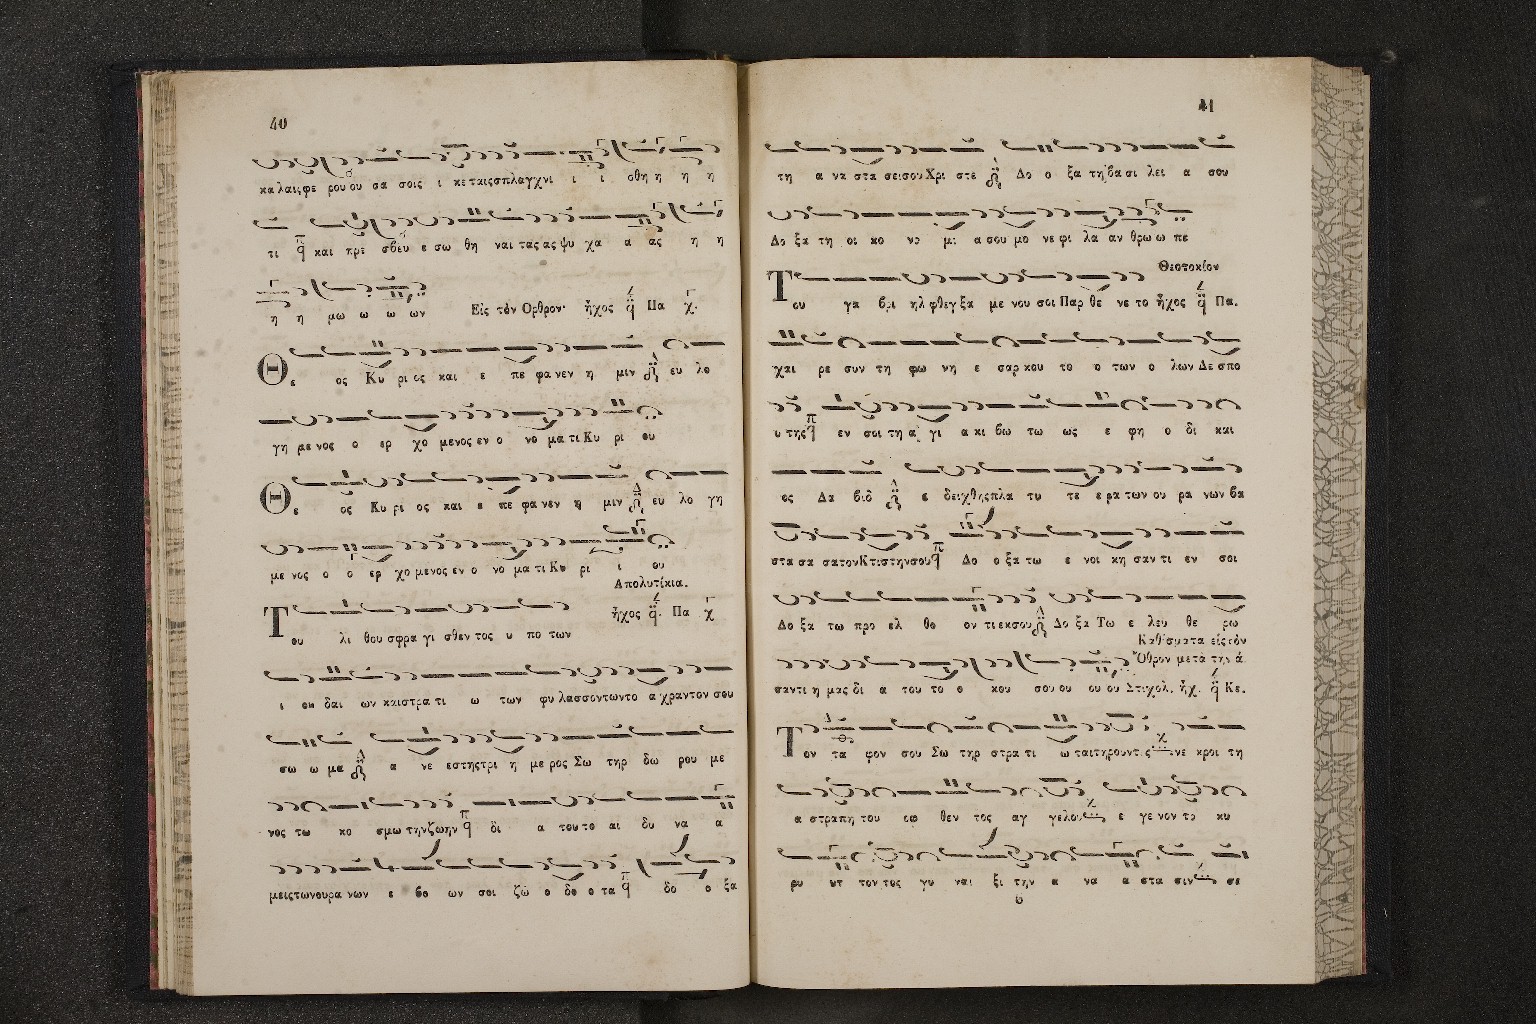 40
κα λαις φε ρου ου σα σοις ι κε ταις σπλαγχνι ι ι σθη η η η
τι και πρε σβευ ε σω θη ναι τας ας ψυ χα α ας η η
η η μω ω ω ων Εἰς τὸν Ορθρον· ἦχος Πα
Θε ος Κυ ρι ος και ε πε φα νεν η μιν ευ λο
γη με νος ο ερ χο μενος εν ο νο μα τι Κυ ρι ου
Θε ος Κυ ρι ος και ε πε φα νεν η μιν ευ λο γη
με νος ο ο ερ χο μενος εν ο νο μα τι Κυ ρι ι ου
Απολυτίκια.
ἦχος Πα
Του λι θου σφρα γι σθεν τος υ πο των
ι ου δαι ων και στρα τι ω των φυ λασσοντων το α χραντον σου
σω ω μα α νε εστης τρι η με ρος Σω τηρ δω ρου με
νος τω κο σμω την ζωην δι α του το αι δυ να α
μεις των ουρα νων ε βο ων σοι ζω ο δο ο τα δο ο ξα
41
τη α να στα σει σου Χρι στε Δο ο ξα τη βα σι λει α σου
Δο ξα τη οι κο νο μι α σου μο νε φι λα αν θρω ω πε
Θεοτοκίον
Του γα βρι ηλ φθεγ ξα με νου σοι Παρ θε νε το ἦχος Πα.
χαι ρε συν τη φω νη ε σαρ κου το ο των ο λων Δε σπο
υ της εν σοι τη α γι α κι βω τω ως ε φη ο δι και
ος Δα βιδ ε δειχθης πλα τυ τε ε ρα των ου ρα νων βα
στα σα σα τον Κτιστην σου Δο ο ξα τω ε νοι κη σαν τι εν σοι
Δο ξα τω προ ελ θο ον τι εκ σου Δο ξα Τω ε λευ θε ρω
Καθίσματα εἰς τὸν
Ὄθρον μετα την ά
σαντι η μας δι α του το ο κου σου ου ου ου Στιχολ. ἦχ. Κε.
Τον τα φον σου Σω τηρ στρα τι ω ται τηρουντες νε κροι τη
α στραπη του οφ θεν τος αγ γελου ε γε νον το κυ
ρυ υτ τον τος γυ ναι ξι την α να α στα σιν σε
6